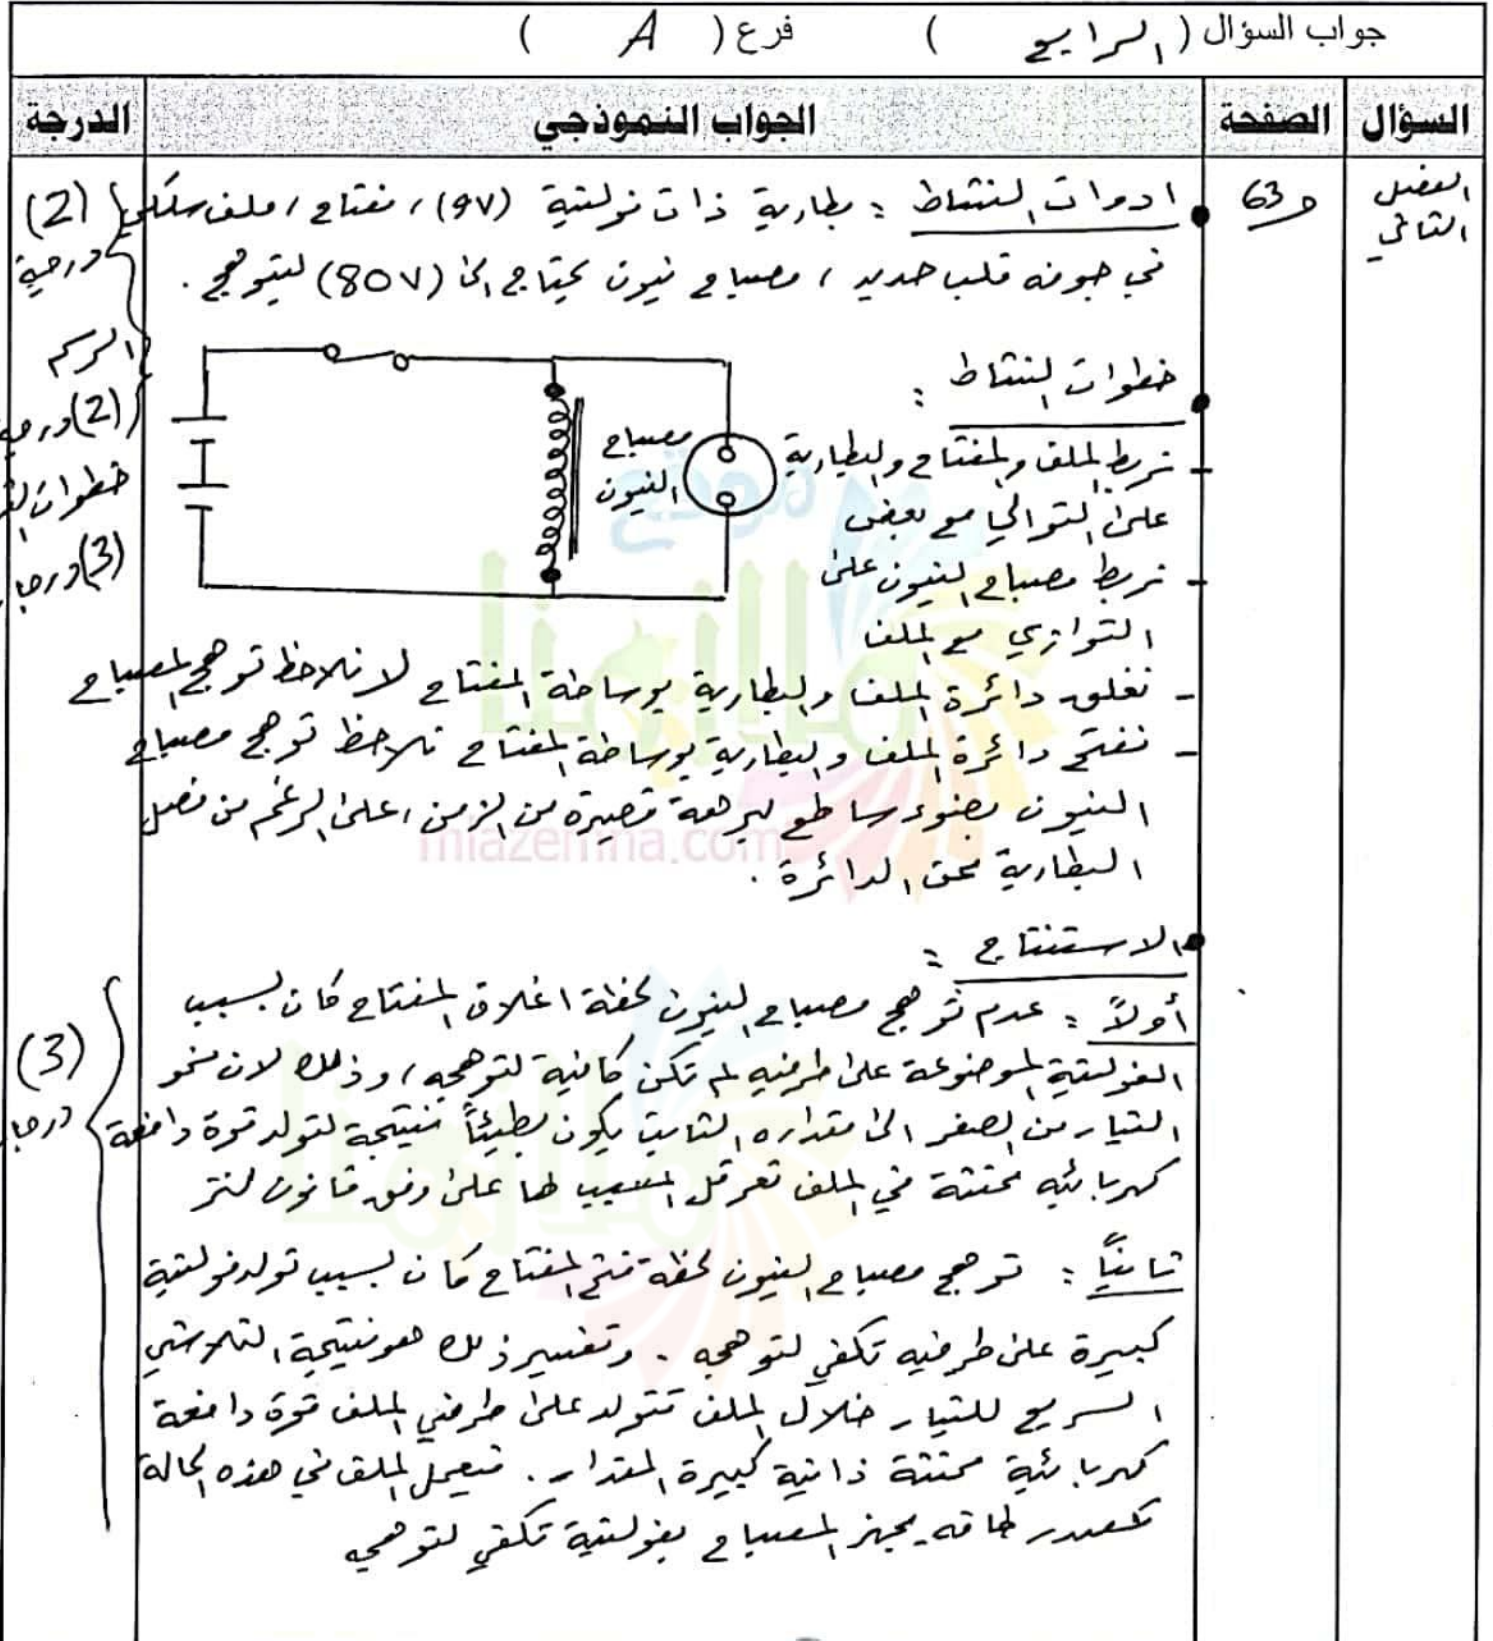 جواب السؤال ( الرابع ) فرع ( A )
السؤال الصفحة الجواب النموذجي الدرجة
الفصل الثاني
ص63
• ادوات النشاط : بطارية ذات فولتية (9V) ، مفتاح ، ملف سلكي
في جوفه قلب حديد ، مصباح نيون يحتاج الى (80V) ليتوهج .
(2) درجة
• خطوات النشاط :
- نربط الملف والمفتاح والبطارية
على التوالي مع بعض
- نربط مصباح النيون على
التوازي مع الملف
مصباح
النيون
الرسم
(2) درجة
خطوات
(3) درجا
- نغلق دائرة الملف والبطارية بوساطة المفتاح لا نلاحظ توهج المصباح
- نفتح دائرة الملف والبطارية بوساطة المفتاح نلاحظ توهج مصباح
النيون بضوء ساطع لبرهة قصيرة من الزمن ، على الرغم من فصل
البطارية عن الدائرة .
• الاستنتاج :
أولاً : عدم توهج مصباح النيون لحظة اغلاق المفتاح كان بسبب
الفولتية الموضوعة على طرفيه لم تكن كافية لتوهجه ، وذلك لان نمو
التيار من الصفر الى مقداره الثابت يكون بطيئاً نتيجة لتولد قوة دافعة
كهربائيه محتثة في الملف تعرقل المسبب لها على وفق قانون لنز
(3)
درجا
ثانياً : توهج مصباح النيون لحظة فتح المفتاح كان بسبب تولد فولتية
كبيرة على طرفيه تكفي لتوهجه . وتفسير ذلك هو نتيجة التلاشي
السريع للتيار خلال الملف تتولد على طرفي الملف قوة دافعة
كهربائية محتثة ذاتية كبيرة المقدار . فيعمل الملف في هذه الحالة
كمصدر طاقه يجهز المصباح بفولتية تكفي لتوهجه
موقع
ملازمنا
mlazemna.com
ملازمنا